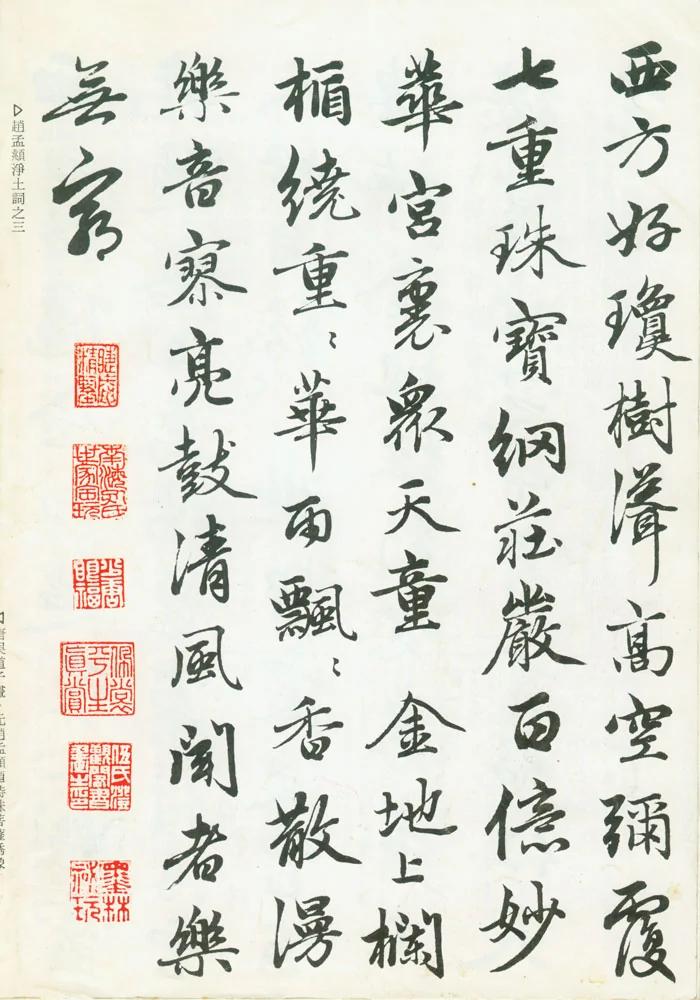 西方好瓊樹聳高空彌覆
七重珠寶網莊嚴百億妙
華宮裏眾天童 金地上欄
楯繞重〻華雨飄〻香散漫
樂音寥亮鼓清風聞者樂
無窮
墨林秘玩
▷趙孟頫淨土詞之三